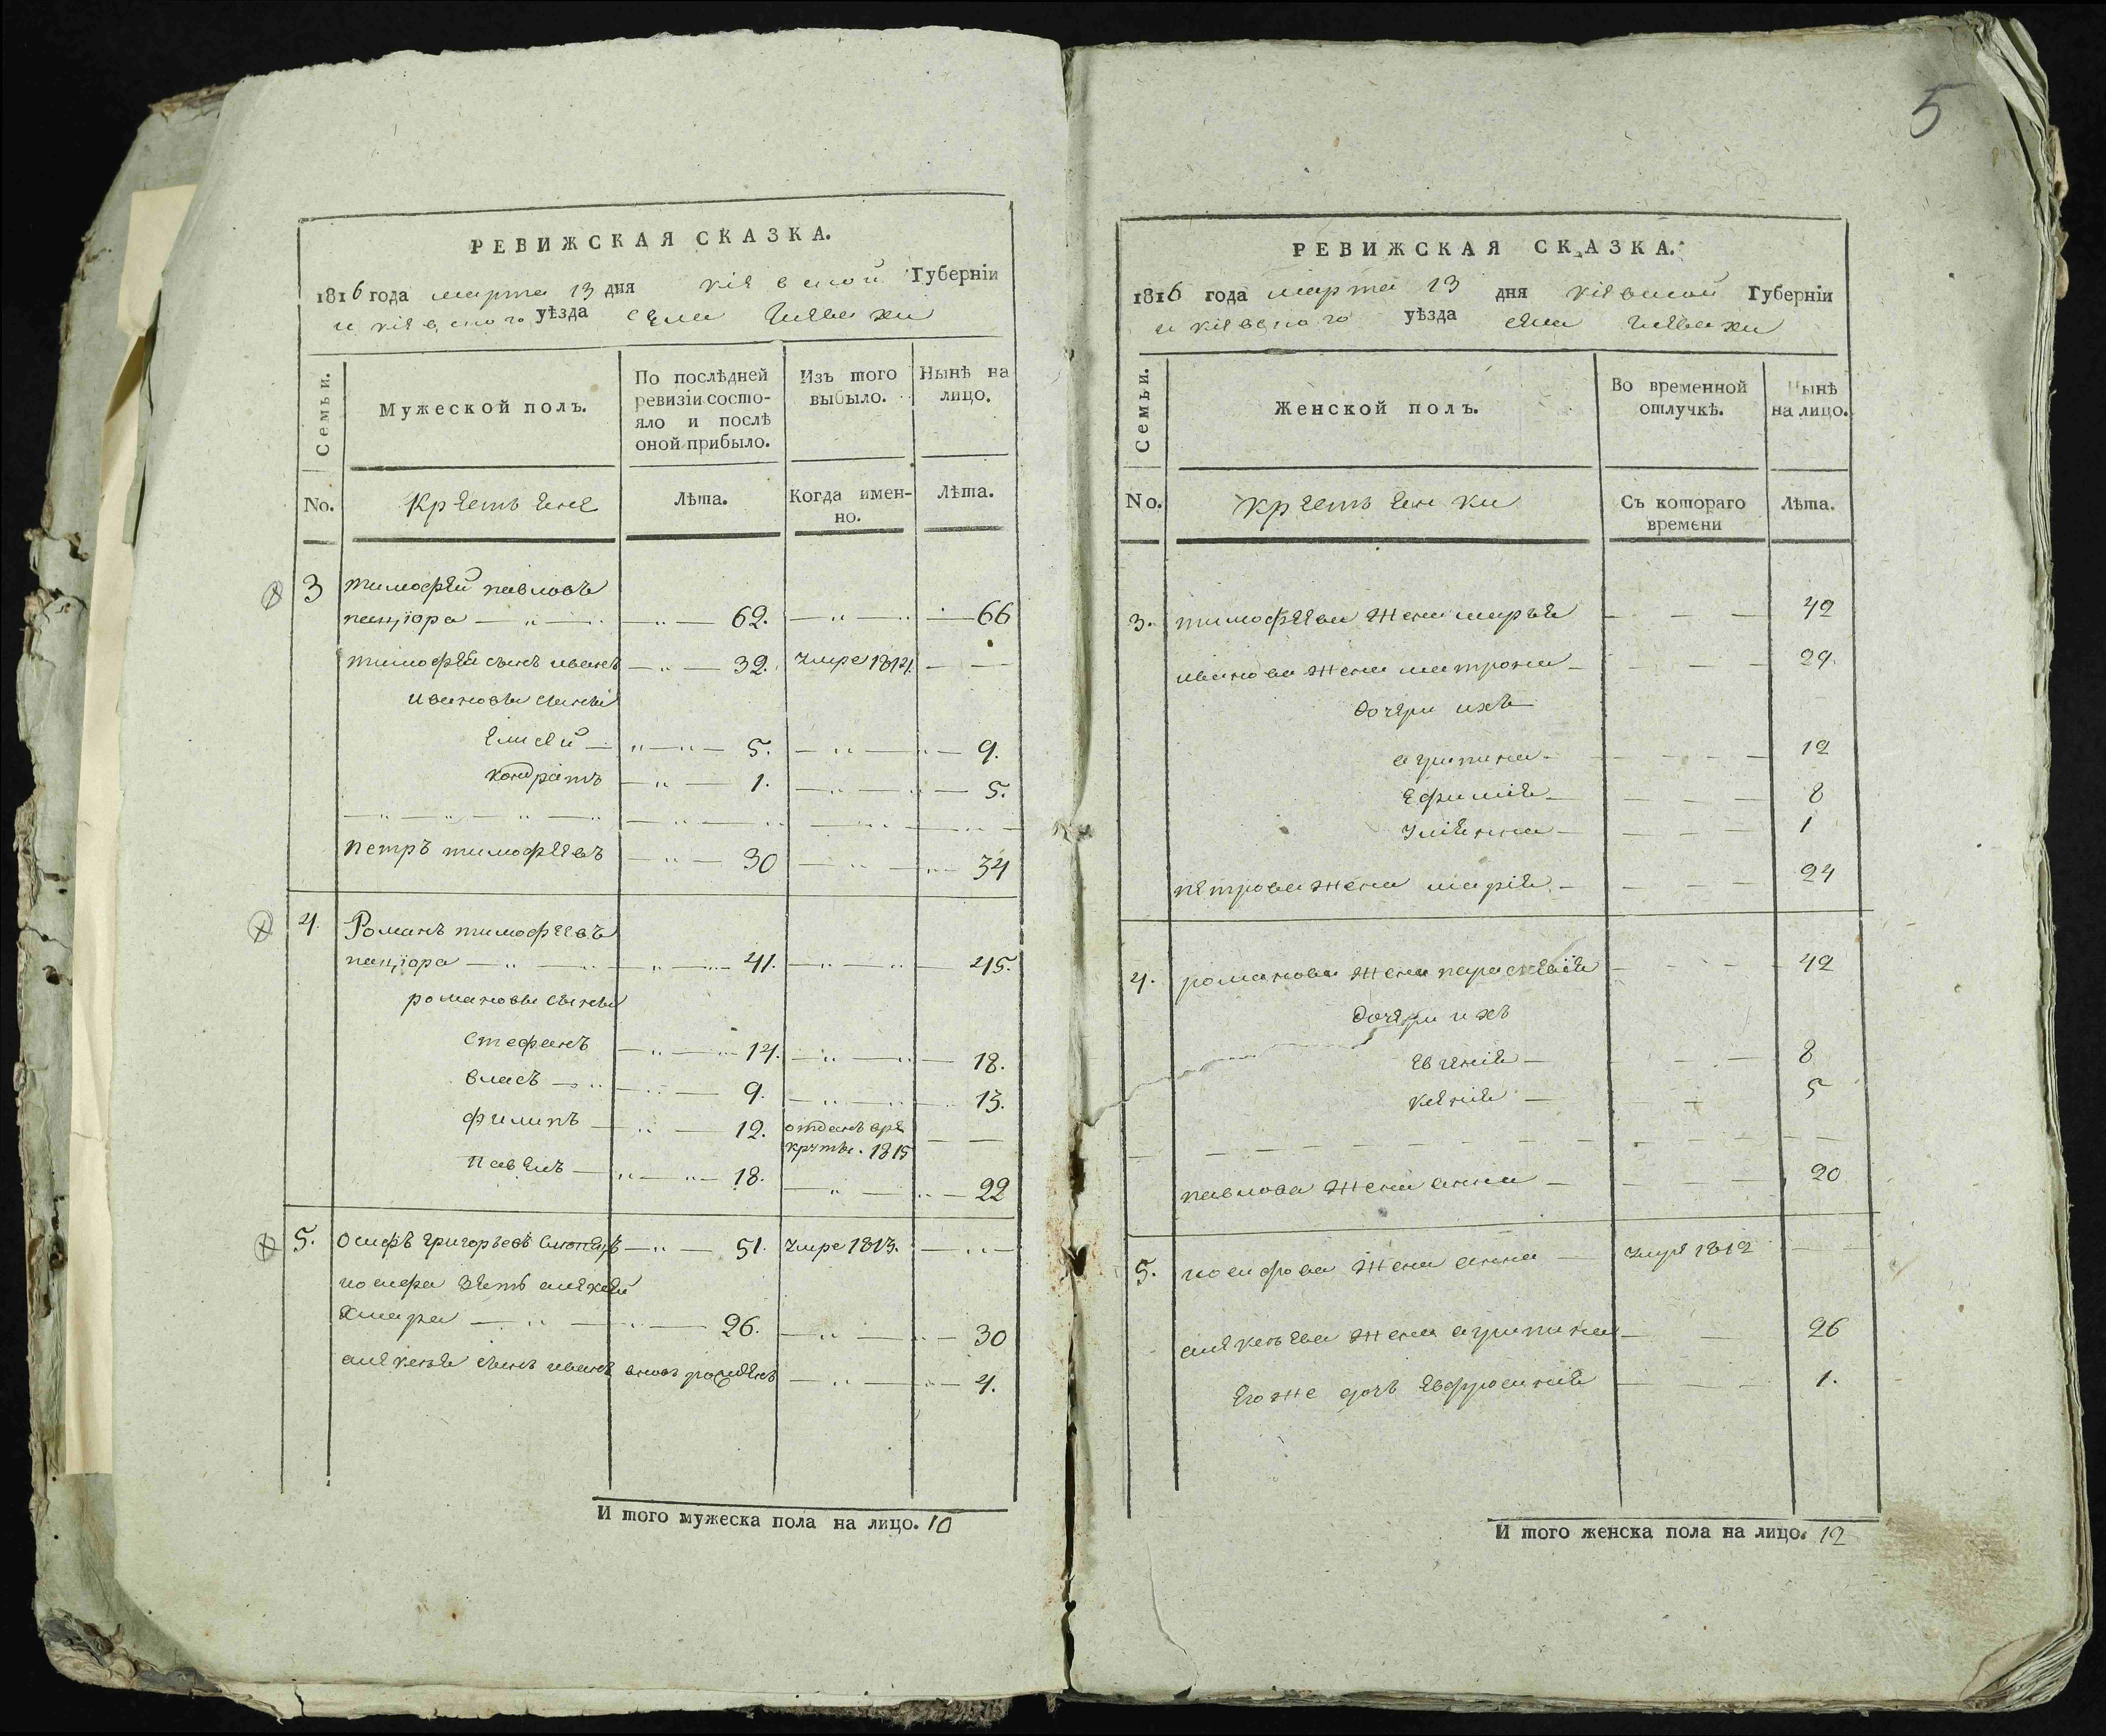 5
РЕВИЖСКАЯ СКАЗКА.
1816 года марта 13 дня кіевской Губерніи
и кіевского уѣзда села
Семьи.
Мужеской полъ.
По послѣдней ревизіи состояло и послѣ оной прибыло.
Изъ того выбыло.
Нынѣ на лицо.
No.
Крестьяне
Лѣта.
Когда именно.
Лѣта.
3 тимофѣй павловъ
пацюра 62. 66
тимофѣй сынъ иванъ 32. умре 1814.
ивановы сыны
Елисей 5. 9.
кондратъ 1. 5.
Петръ тимофѣевъ 30 34
4. Романъ тимофѣевъ
пацюра 41. 45.
романовы сыны
Стефанъ 14. 18.
власъ 9. 13.
филипъ 12. отданъ врекруты. 1815
Павелъ 18. 22
5. Осифъ григорьевъ 51. умре 1813.
иосифа зять алексей
хмара 26. 30
алексея сынъ иванъ вновь рожденъ 4.
И того мужеска пола на лицо. 10
РЕВИЖСКАЯ СКАЗКА.
1816 года марта 13 дня кіевской Губерніи
и кіевского уѣзда села
Семьи.
Женской полъ.
Во временной отлучкѣ.
Нынѣ на лицо.
No.
крестьянки
Съ котораго времени
Лѣта.
3. тимофѣева жена марья 42
иванова жена матрона 29.
дочери ихъ
агрипина 12
Ефимія 8
Уліянна 1
петрова жена марія 24
4. романова жена параскевія 42
дочери ихъ
Евгенія 8
ксенія 5
павлова жена анна 20
5. иосифова жена анна умре 1812
алексеева жена агрипина 26
Его же дочь Евфросинія 1.
И того женска пола на лицо. 12